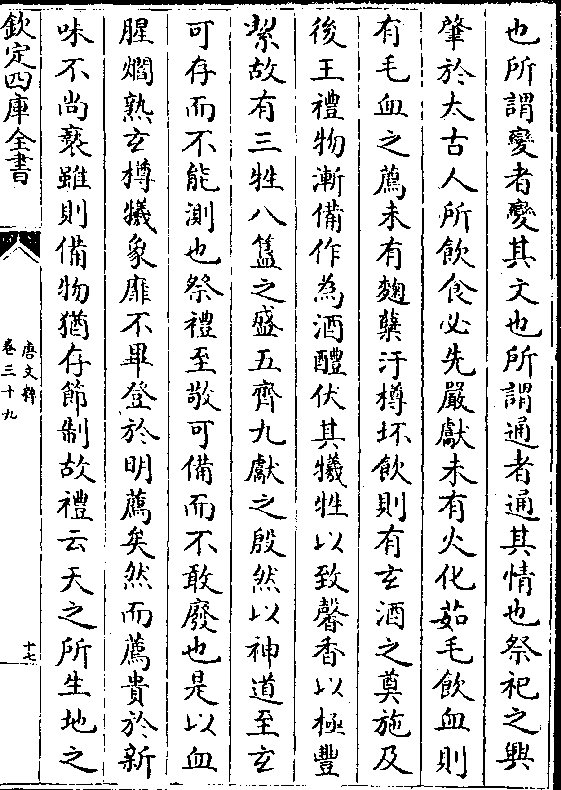 也所謂變者變其文也所謂通者通其情也祭祀之興
肇於太古人所飲食必先嚴獻未有火化茹毛飲血則
有毛血之薦未有麴糵汙樽坏飲則有玄酒之奠施及
後王禮物漸備作為酒醴伏其犧牲以致馨香以極豐
絜故有三牲八簋之盛五齊九獻之殷然以神道至玄
可存而不能測也祭禮至敬可備而不敢廢也是以血
腥爓熟玄樽犧象靡不畢登於明薦矣然而薦貴於新
味不尚褻雖則備物猶存節制故禮云天之所生地之
欽定四庫全書
唐文粹
卷三十九
十七